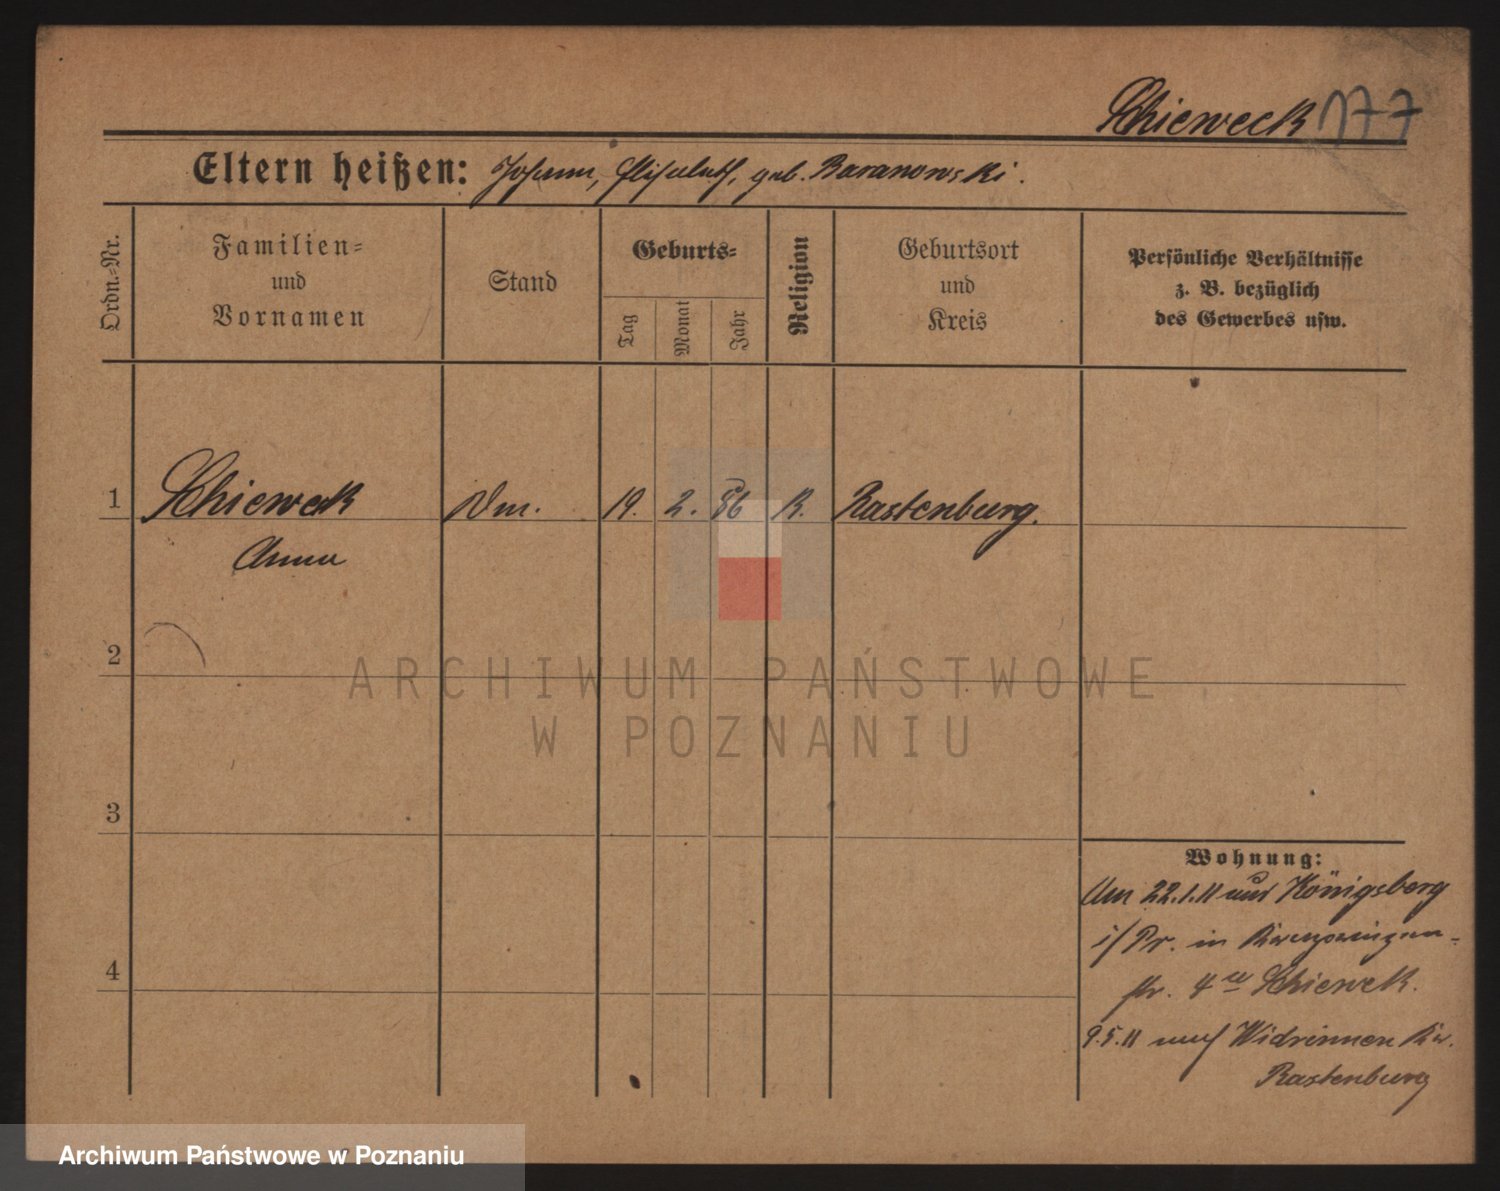 Schieweck 177
Eltern heißen: Johann, Elisabeth, geb. Baranowski.
Ordn.-Nr.
Familien-
und
Vornamen
Stand
Geburts-
Tag
Monat
Jahr
Religion
Geburtsort
und
Kreis
Persönliche Verhältnisse
z. B. bezüglich
des Gewerbes usw.
1 Schieweck 19. 2. 86 K. Rastenburg.
Anna
2
3
4
Wohnung:
Am 22.1.11 aus Königsberg
i/Pr. in
str. 4 Schieweck.
9.5.11 nach Widrinnen Kr.
Rastenburg
ARCHIWUM PAŃSTWOWE
W POZNANIU
Archiwum Państwowe w Poznaniu